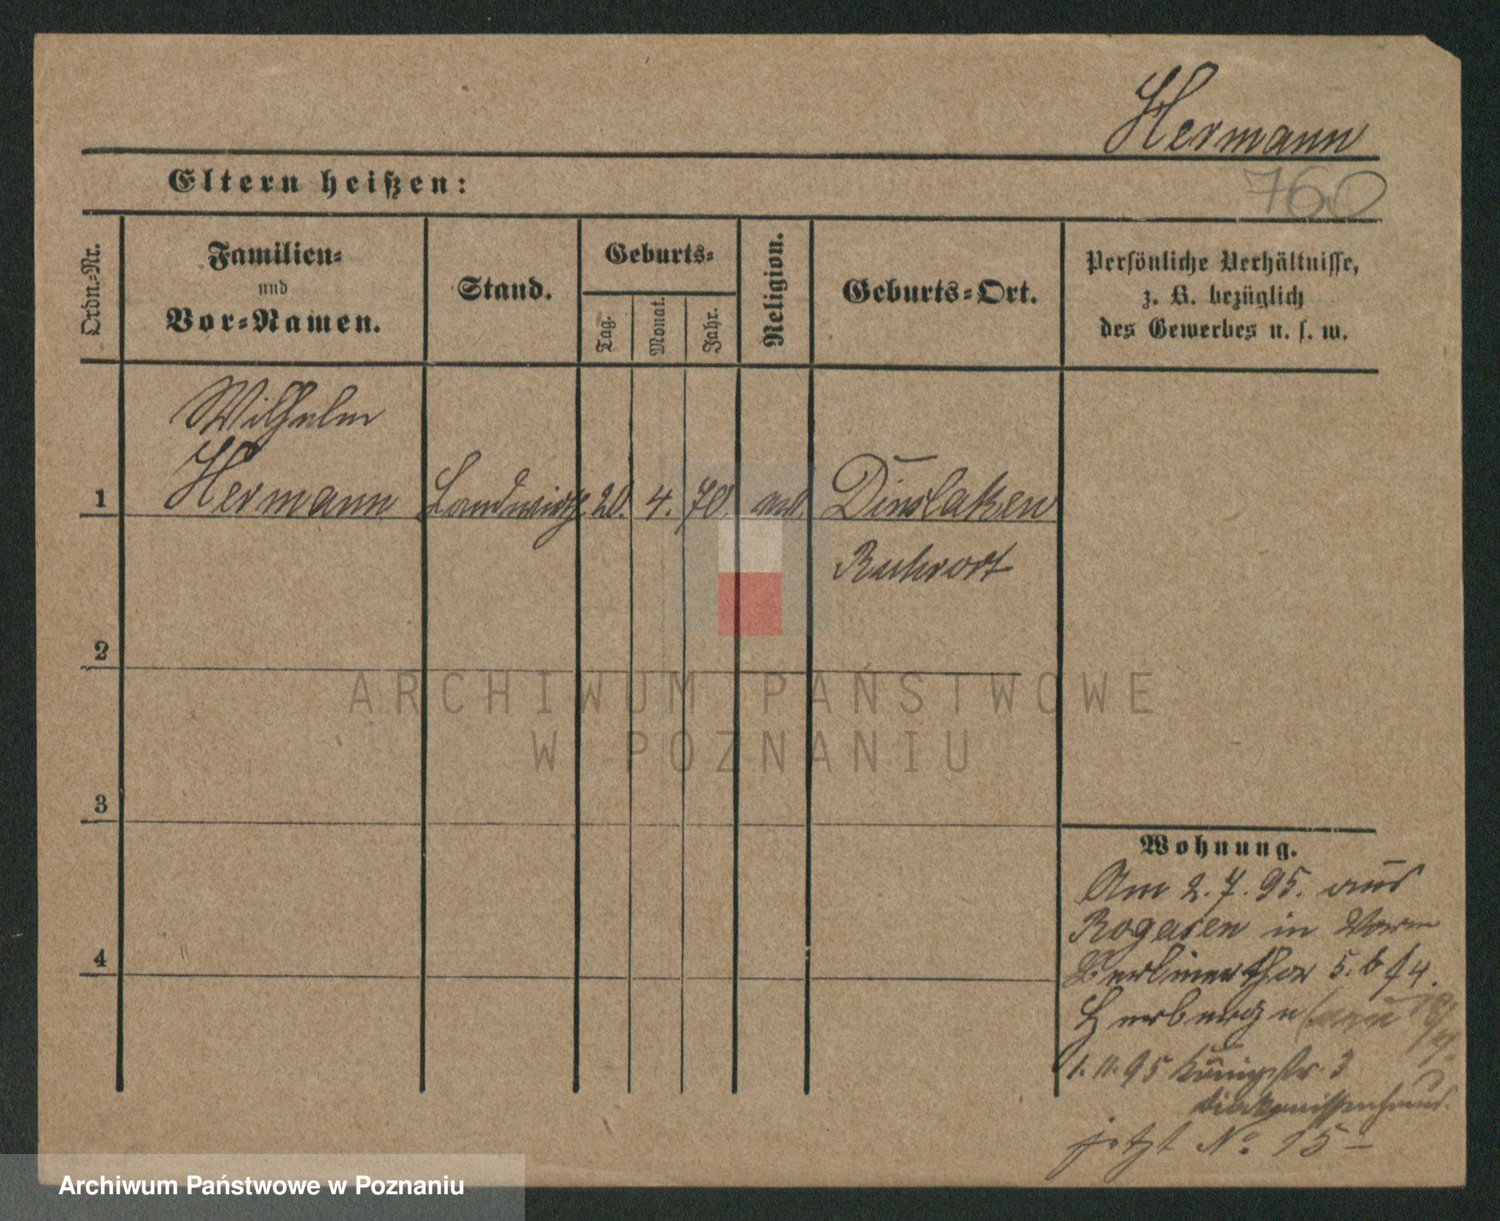 Hermann
760
Eltern heißen:
Ordn.-Nr.
Familien-
und
Vor-Namen.
Stand.
Geburts-
Tag.
Monat.
Jahr.
Religion.
Geburts-Ort.
Persönliche Verhältnisse,
z. B. bezüglich
des Gewerbes u. s. w.
Wilhelm
1 Hermann Landwirth 20. 4. 70. Dinslaken
Ruhrort
2
ARCHIWUM PAŃSTWOWE
W POZNANIU
3
Wohnung.
Am 2. 7. 95. aus
Rogasen in
Berlinerthor 5. b
4
Herberge
1. 11. 95 Königstr. 3
Diakonissenhaus.
jetzt No 15
Archiwum Państwowe w Poznaniu